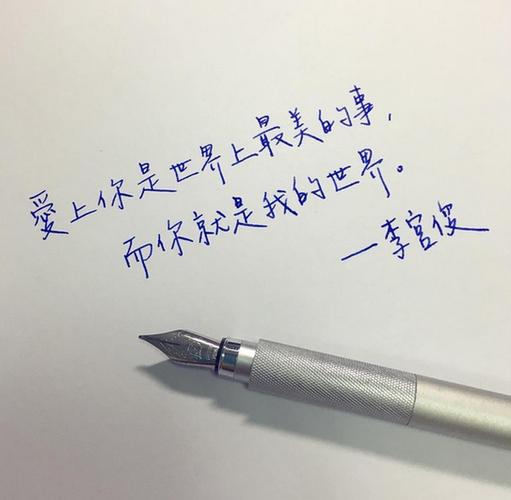 愛上你是世界上最美的事，
而你就是我的世界。
—李宮俊